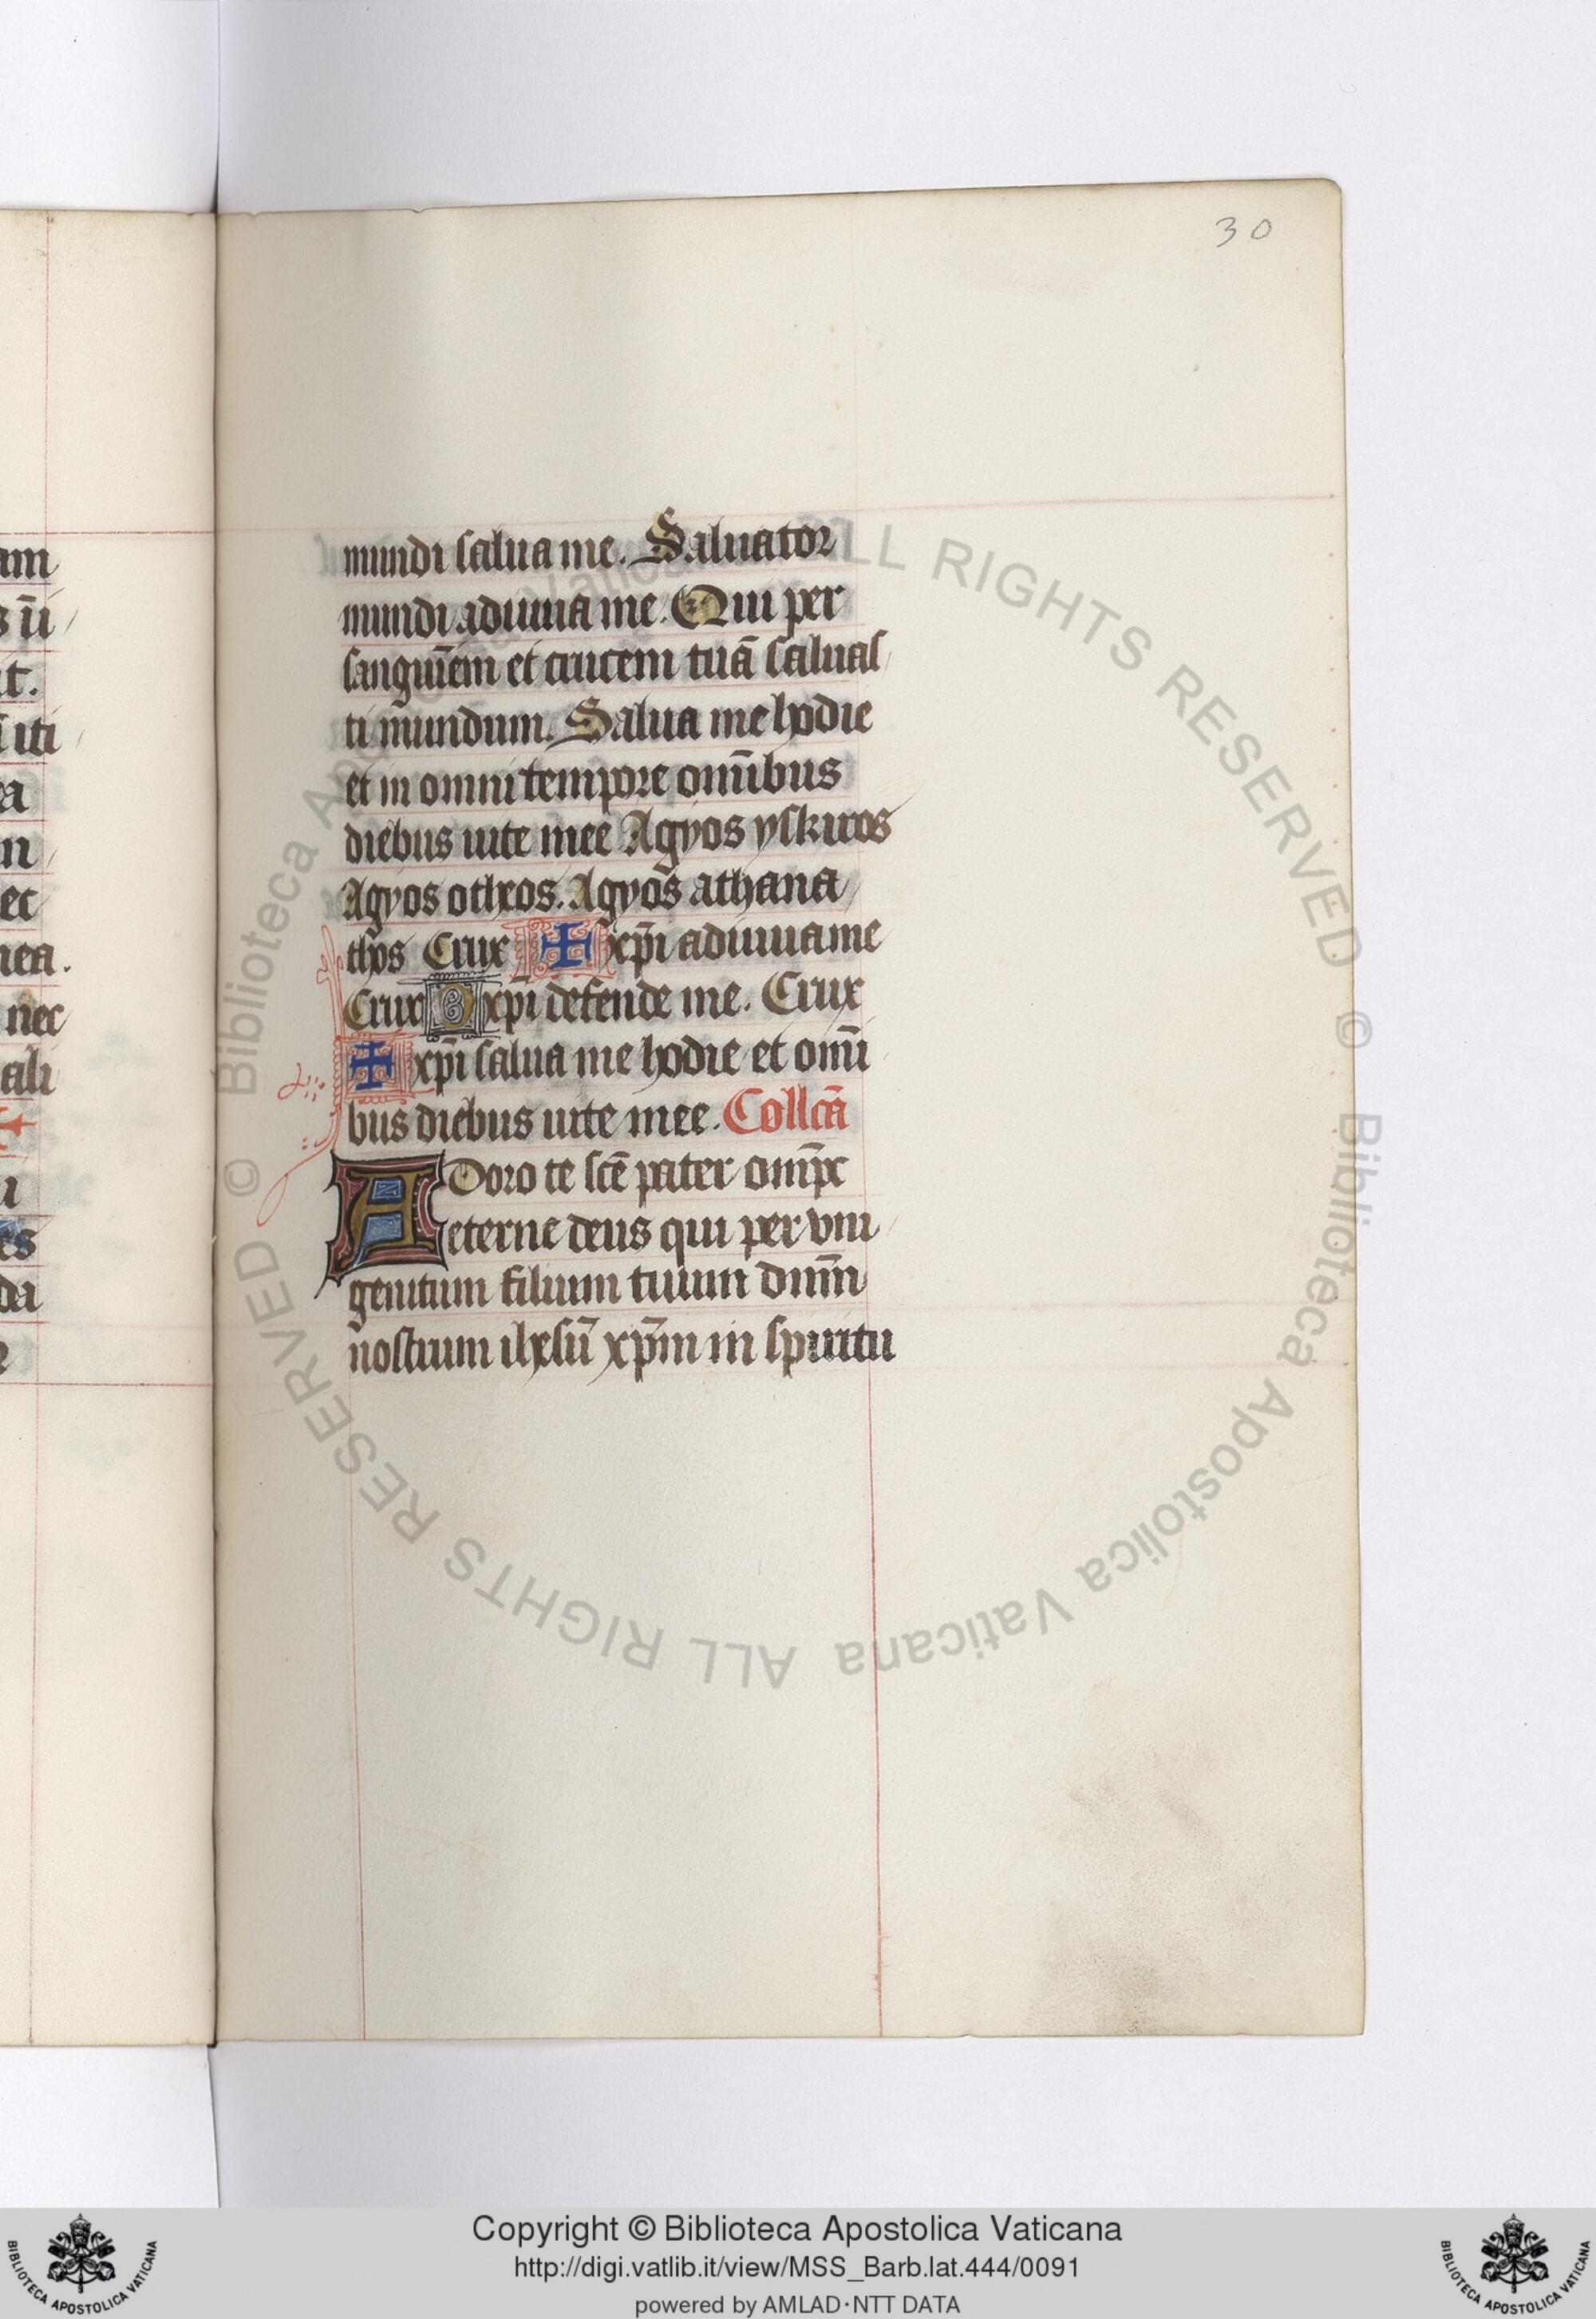 30
mundi salua me. Saluator
mundi adiuua me. Qui per
sanguīem et crucem tuā saluas
ti mundum. Salua me hodie
et in omni tempore omībus
diebus uite mee Agyos yskiros
Agyos otheos. Agyos athana
thos Crux ✠ xp̄i adiuua me
Crux xp̄i defende me. Crux
✠ xp̄i salua me hodie et omī
bus diebus uite mee. Collcā
Adoro te scē pater omp̄c
eterne deus qui per vni
genitum filium tuum dnm̄
nostrum ihesū xp̄m in spiritu
am
s ū
t.
iti
a
n
ec
nea.
nec
ali
es
da
© Biblioteca Apostolica Vaticana ALL RIGHTS RESERVED © Biblioteca Apostolica Vaticana ALL RIGHTS RESERVED
Copyright © Biblioteca Apostolica Vaticana
http://digi.vatlib.it/view/MSS_Barb.lat.444/0091
powered by AMLAD·NTT DATA
BIBLIOTECA APOSTOLICA VATICANA
BIBLIOTECA APOSTOLICA VATICANA